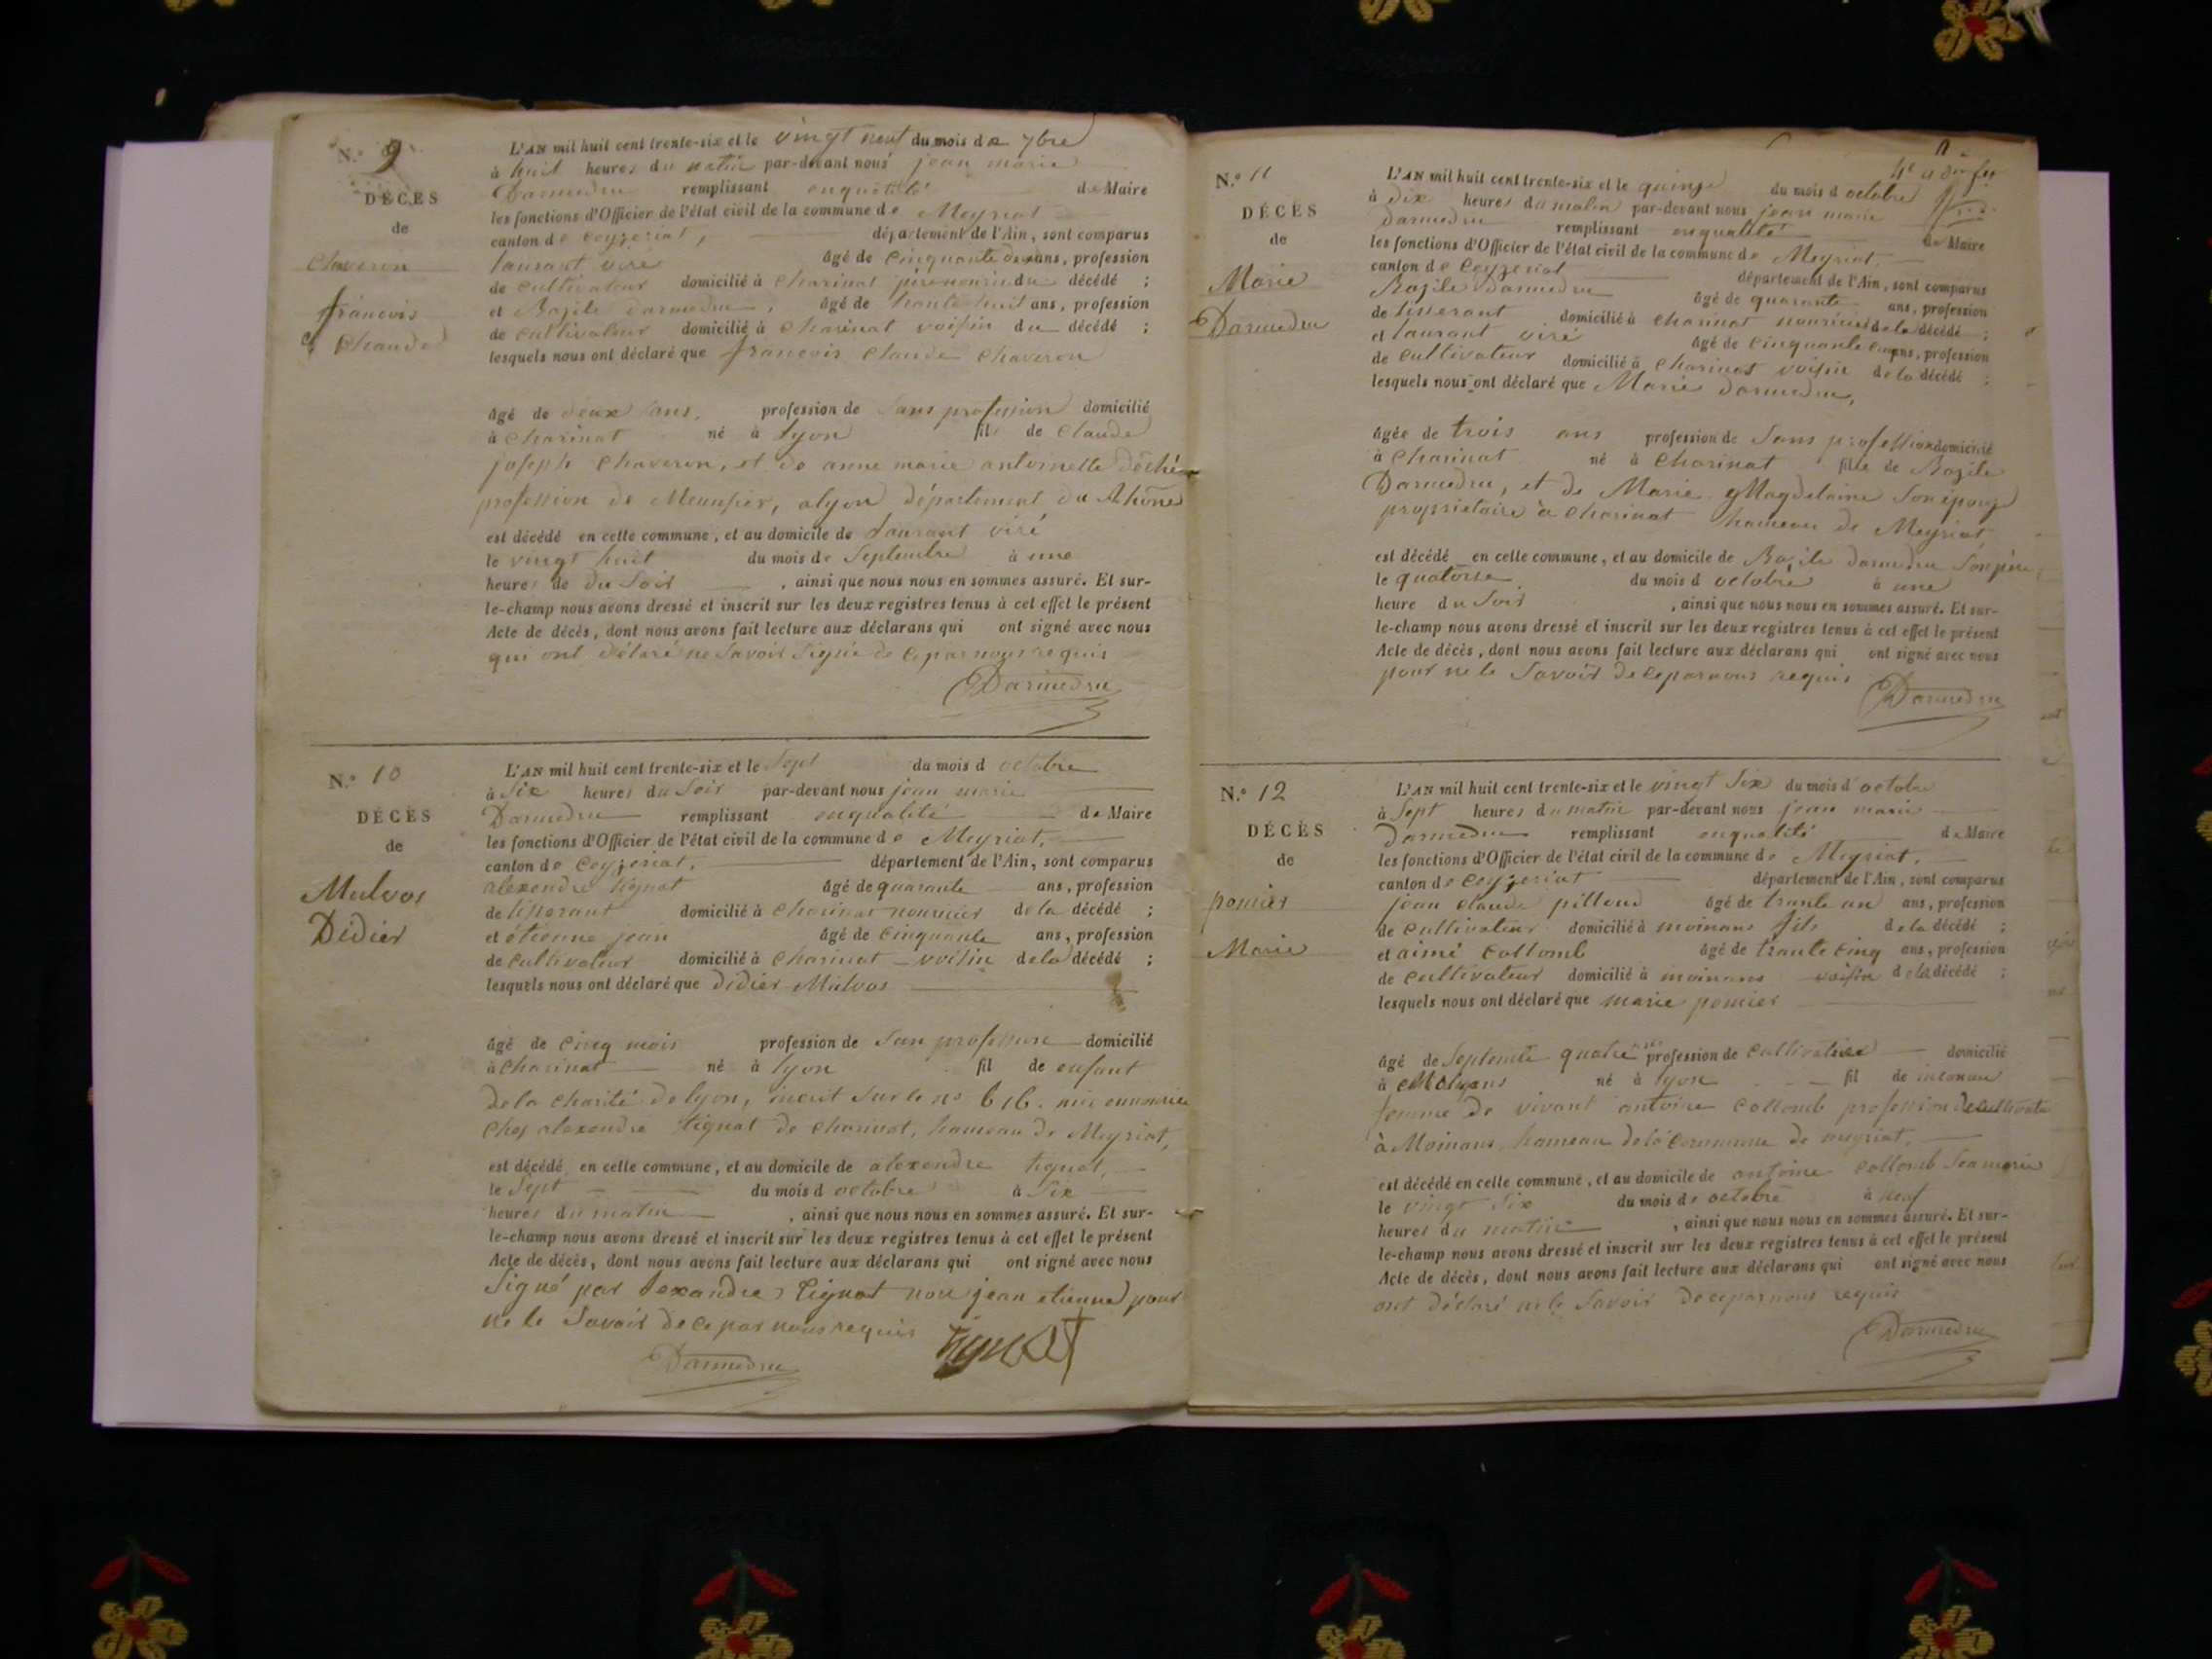 N.° 9
DÉCÈS
de
Chaveron
françois
Chaude
L'AN mil huit cent trente-six et le vingt neuf du mois de 7bre
à huit heures du matin par-devant nous jean marie
Darmedru remplissant en qualité de Maire
les fonctions d'Officier de l'état civil de la commune de Meyriat
canton de Ceyzeriat, département de l'Ain, sont comparus
laurant viré âgé de Cinquante deux ans, profession
de cultivateur domicilié à Charinat père nouricier du décédé ;
et Bazile darmedru, âgé de trante huit ans, profession
de cultivateur domicilié à Charinat voisin du décédé ;
lesquels nous ont déclaré que françois claude Chaveron
âgé de deux ans, profession de Sans profession domicilié
à Charinat né à lyon fils de Claude
joseph Chaveron, et de anne marie antoinette
profession de Meunsier, a lyon département du Rhône
est décédé en cette commune, et au domicile de laurant viré
le vingt huit du mois de Septembre à une
heures de du Soir, ainsi que nous nous en sommes assuré. Et sur-
le-champ nous avons dressé et inscrit sur les deux registres tenus à cet effet le présent
Acte de décès, dont nous avons fait lecture aux déclarans qui ont signé avec nous
qui ont délaré ne Savoir Signé de ce par nous requis
Darmedru
N.° 10
DÉCÈS
de
Mulvos
Didier
L'AN mil huit cent trente-six et le Sept du mois d octobre
à Six heures du Soir par-devant nous jean marie
Darmedru remplissant en qualité de Maire
les fonctions d'Officier de l'état civil de la commune de Meyriat,
canton de Ceyzeriat. département de l'Ain, sont comparus
alexendre tignat âgé de quarante ans, profession
de tisserant domicilié à Charinat nouricier de la décédé ;
et étienne jean âgé de Cinquante ans, profession
de cultivateur domicilié à Charinat voisin de la décédé ;
lesquels nous ont déclaré que Didier Mulvos
âgé de Cinq mois profession de San profession domicilié
à Charinat né à lyon fil de enfant
de la charité de lyon, inscrit Sur le no 616. mis en nourice
chez alexendre tignat de charinat, hameau de Meyriat,
est décédé en cette commune, et au domicile de alexendre tignat,
le Sept du mois d octobre à Six
heures du matin, ainsi que nous nous en sommes assuré. Et sur-
le-champ nous avons dressé et inscrit sur les deux registres tenus à cet effet le présent
Acte de décès, dont nous avons fait lecture aux déclarans qui ont signé avec nous
Signé par lexandre tignat non jean etienne pour
ne le Savoir de ce par nous requis
tignat
Darmedru
N.° 11
DÉCÈS
de
Marie
Darmedru
L'AN mil huit cent trente-six et le quinze du mois d octobre
à dix heures du matin par-devant nous jean marie
darmedru remplissant en qualité de Maire
les fonctions d'Officier de l'état civil de la commune de Meyriat,
canton de Ceyzeriat département de l'Ain, sont comparus
Bazile darmedru âgé de quarante ans, profession
de tisserant domicilié à Charinat nouricier de la décédé ;
et laurant viré âgé de Cinquante ans, profession
de cultivateur domicilié à Charinat voisin de la décédé ;
lesquels nous ont déclaré que Marie darmedru,
âgée de trois ans profession de Sans profession domicilié
à Charinat né à Charinat fille de Bazile
Darmedru, et de Marie Magdelaine Son épouze
propriétaire à Charinat hameau de Meyriat
est décédé en cette commune, et au domicile de Bazile darmedru Son père,
le quatorse du mois d octobre à une
heure du Soir, ainsi que nous nous en sommes assuré. Et sur-
le-champ nous avons dressé et inscrit sur les deux registres tenus à cet effet le présent
Acte de décès, dont nous avons fait lecture aux déclarans qui ont signé avec nous
pour ne le Savoir de ce par nous requis
Darmedru
N.° 12
DÉCÈS
de
pomier
Marie
L'AN mil huit cent trente-six et le vingt Six du mois d'octobre
à Sept heures du matin par-devant nous jean marie
Darmedru remplissant en qualité de Maire
les fonctions d'Officier de l'état civil de la commune de Meyriat.
canton de Ceyzeriat département de l'Ain, sont comparus
jean claude pilloud âgé de trante un ans, profession
de cultivateur domicilié à moinans fils de la décédé ;
et aimé Collomb âgé de trante cinq ans, profession
de cultivateur domicilié à moinans voisin de la décédé ;
lesquels nous ont déclaré que marie pomier
âgé de Septente quatre profession de cultivatice domicilié
à né à lyon fil de inconnu
femme de vivant antoine Collomb profession de cultivate
à Moinans, hameau de la Commune de meyriat.
est décédé en cette commune, et au domicile de antoine Collomb Son marie
le vingt Six du mois de octobre à neuf
heures du matin, ainsi que nous nous en sommes assuré. Et sur-
le-champ nous avons dressé et inscrit sur les deux registres tenus à cet effet le présent
Acte de décès, dont nous avons fait lecture aux déclarans qui ont signé avec nous
ont déclaré ne le Savoir de ce par nous requis
Darmedru